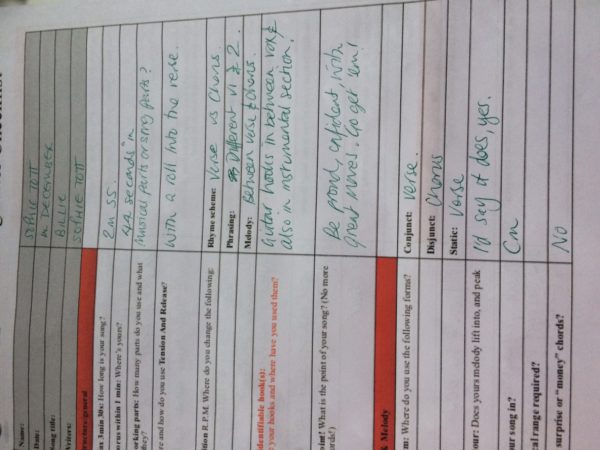 Name: SOPHIE TOTT
Date: in DECEMBER
Song title: BILLIE
Writers: SOPHIE TOTT
structure: general
3min 30s: How long is your song? 2m 55.
chorus within 1 min: Where's yours? 42 seconds in
working parts: How many parts do you use and what
they? musical parts or song parts?
re and how do you use Tension And Release? With a roll into the verse.
R.P.M. Where do you change the following: Rhyme scheme: Verse vs Chorus
Phrasing: Different V1 & 2.
Melody: Between verse & chorus.
identifiable hook(s): Guitar hooks in between vox &
your hooks and where have you used them? also in instrumental section!
What is the point of your song? (No more Be proud, confident, with
great moves. Go get 'em!
& Melody
Where do you use the following forms? Conjunct: Verse.
Disjunct: Chorus
Static: Verse
our: Does yours melody lift into, and peak I'd say it does, yes.
our song in? Cm
range required?
surprise or "money" chords? No